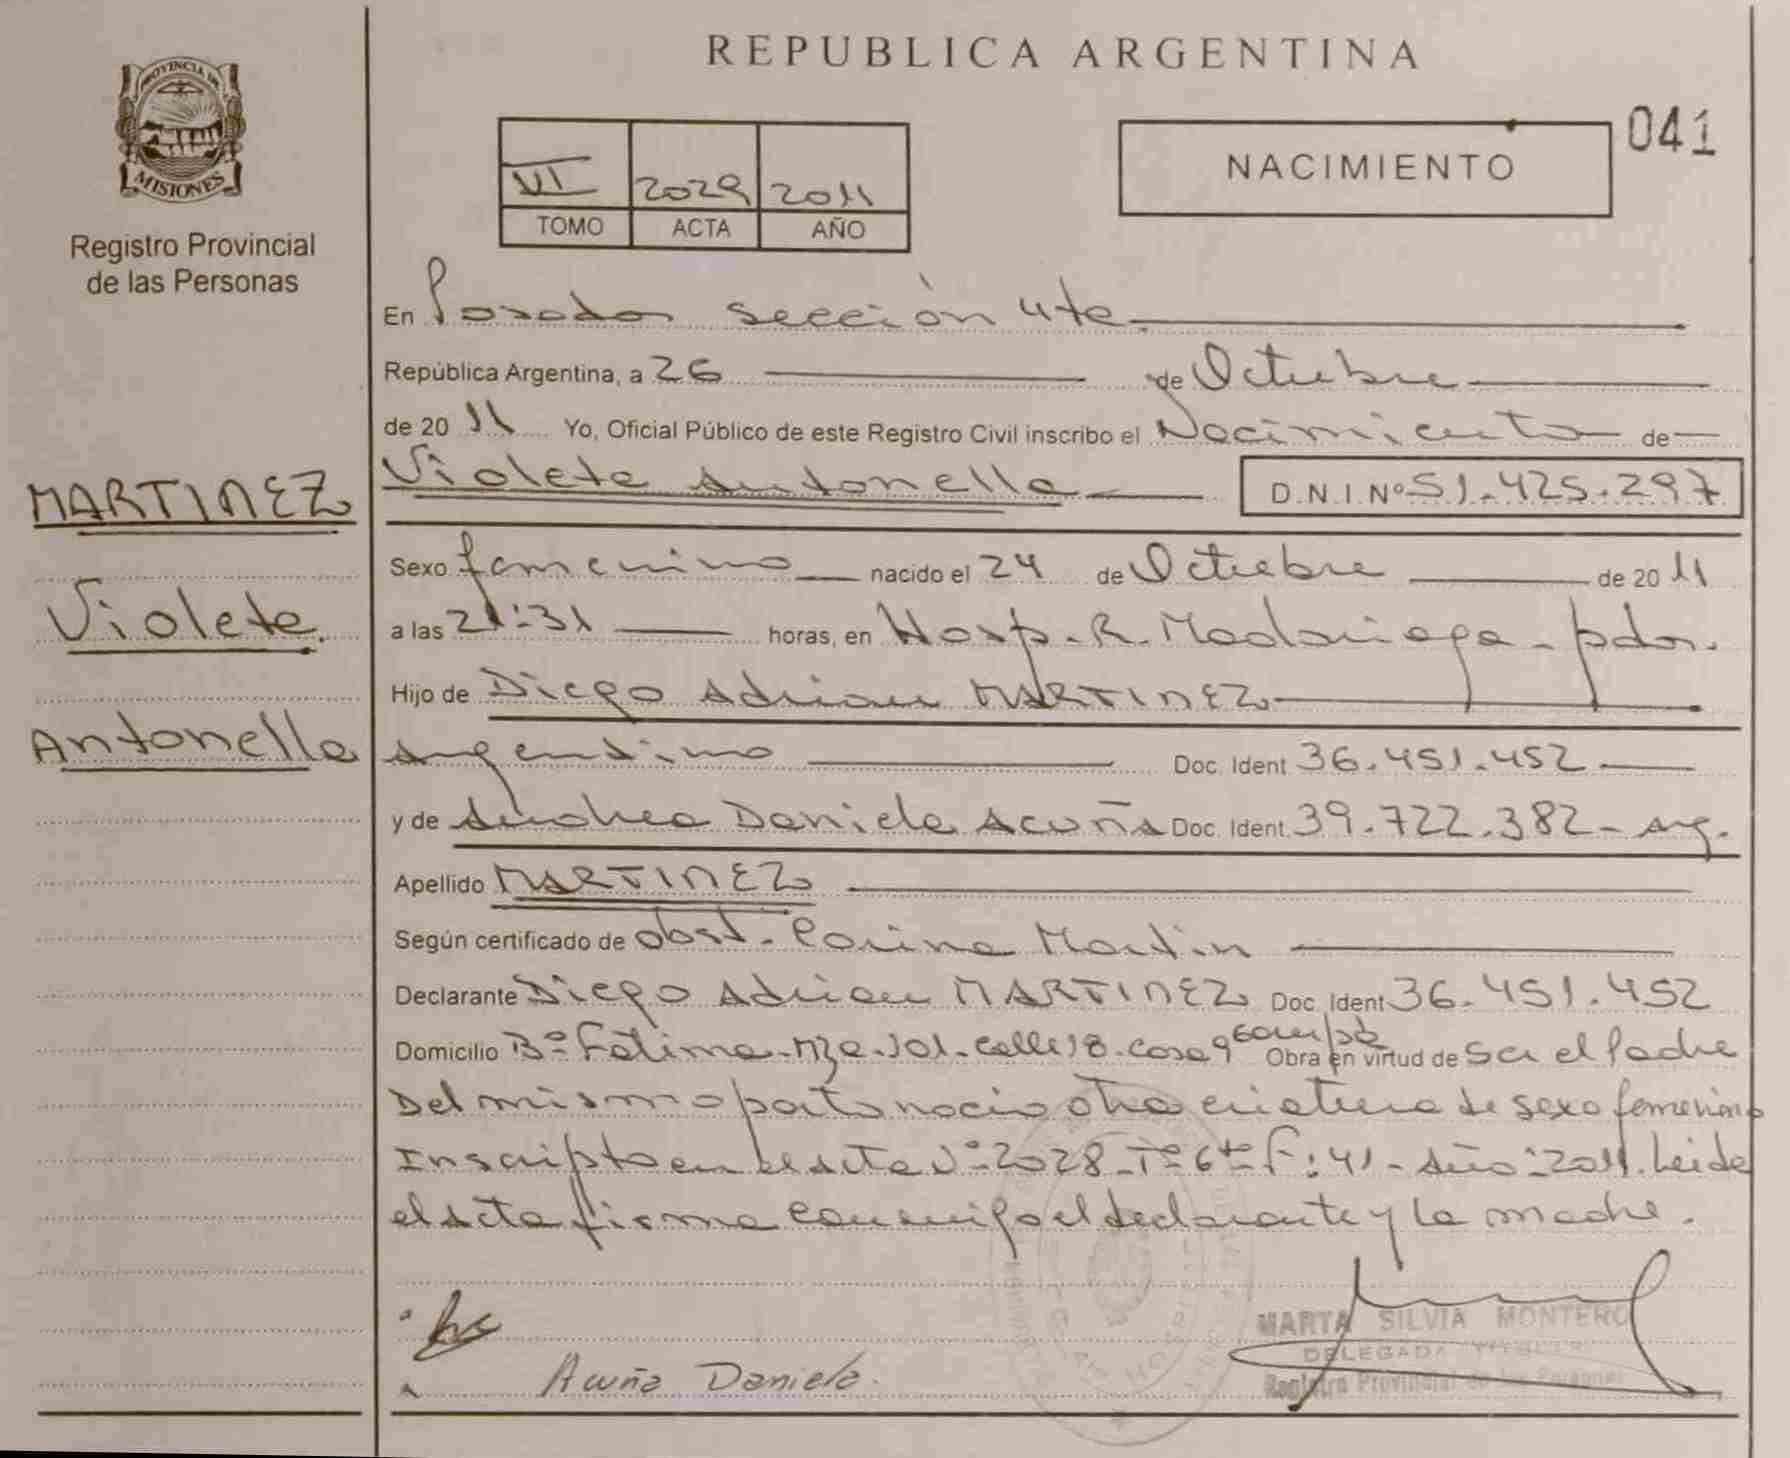 REPUBLICA ARGENTINA
PROVINCIA DE
MISIONES
Registro Provincial
de las Personas
VI 2029 2011
TOMO ACTA AÑO
NACIMIENTO
041
En Posadas sección 4ta.
República Argentina, a 26 de Octubre
de 2011 Yo, Oficial Público de este Registro Civil inscribo el Nacimiento de
Violeta Antonella D.N.I. Nº 51.425.297
MARTINEZ
Violeta.
Antonella
Sexo femenino nacido el 24 de Octubre de 2011
a las 21:31 horas, en Hosp. R. Madariaga - pdas.
Hijo de Diego Adrian MARTINEZ
Argentino Doc. Ident 36.451.452
y de Andrea Daniela Acuña Doc. Ident. 39.722.382 - arg.
Apellido MARTINEZ
Según certificado de obst. Carina Martin
Declarante Diego Adrian MARTINEZ Doc. Ident 36.451.452
Domicilio Bº Fatima. Mza. 101. calle 18. casa 9 Obra en virtud de ser el Padre
Del mismo parto nacio otra criatura de sexo femenino
Inscripto en el acta Nº 2028 - Tº 6to F: 41 - Año: 2011. Leida
el acta firma conmigo el declarante y la madre.
MARTA SILVIA MONTERO
DELEGADA TITULAR
Registro Provincial de las Personas
Acuña Daniela.